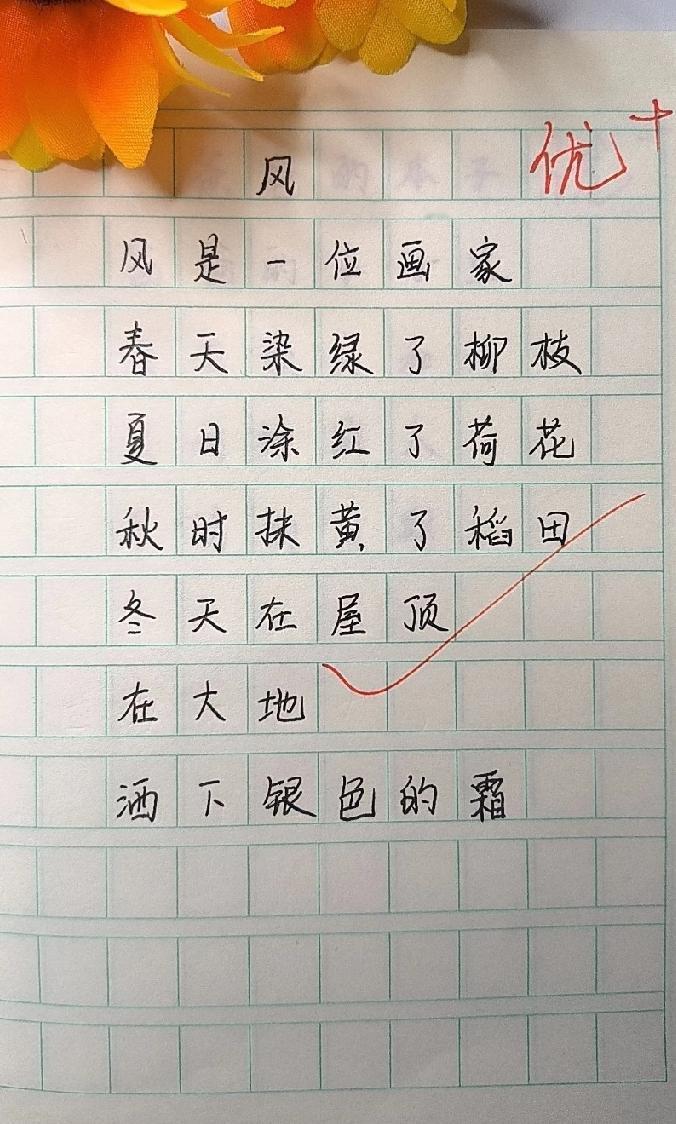 风 优+
风是一位画家
春天染绿了柳枝
夏日涂红了荷花
秋时抹黄了稻田
冬天在屋顶
在大地
洒下银色的霜